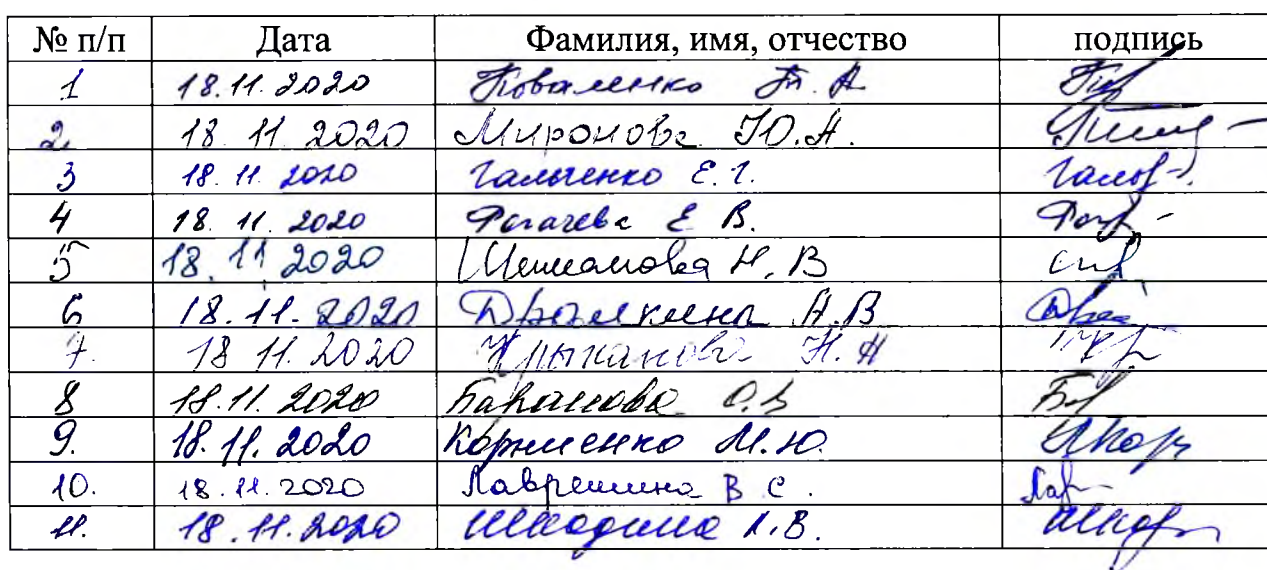 № п/п Дата Фамилия, имя, отчество подпись
1 18.11.2020 Коваленко Т. А.
2. 18.11.2020 Миронова Ю.А.
3 18.11.2020 Гальченко Е.Г.
4 18.11.2020 Рогачева Е В.
5 18.11 2020 Н. В
6 18.11.2020 А.В
7. 18 11.2020 Н.
8 18.11.2020 Баранова О.В
9. 18.11.2020 Корниенко М.Ю.
10. 18.11.2020 Лаврешина В С.
11. 18.11.2020 Шкодина Л.В.